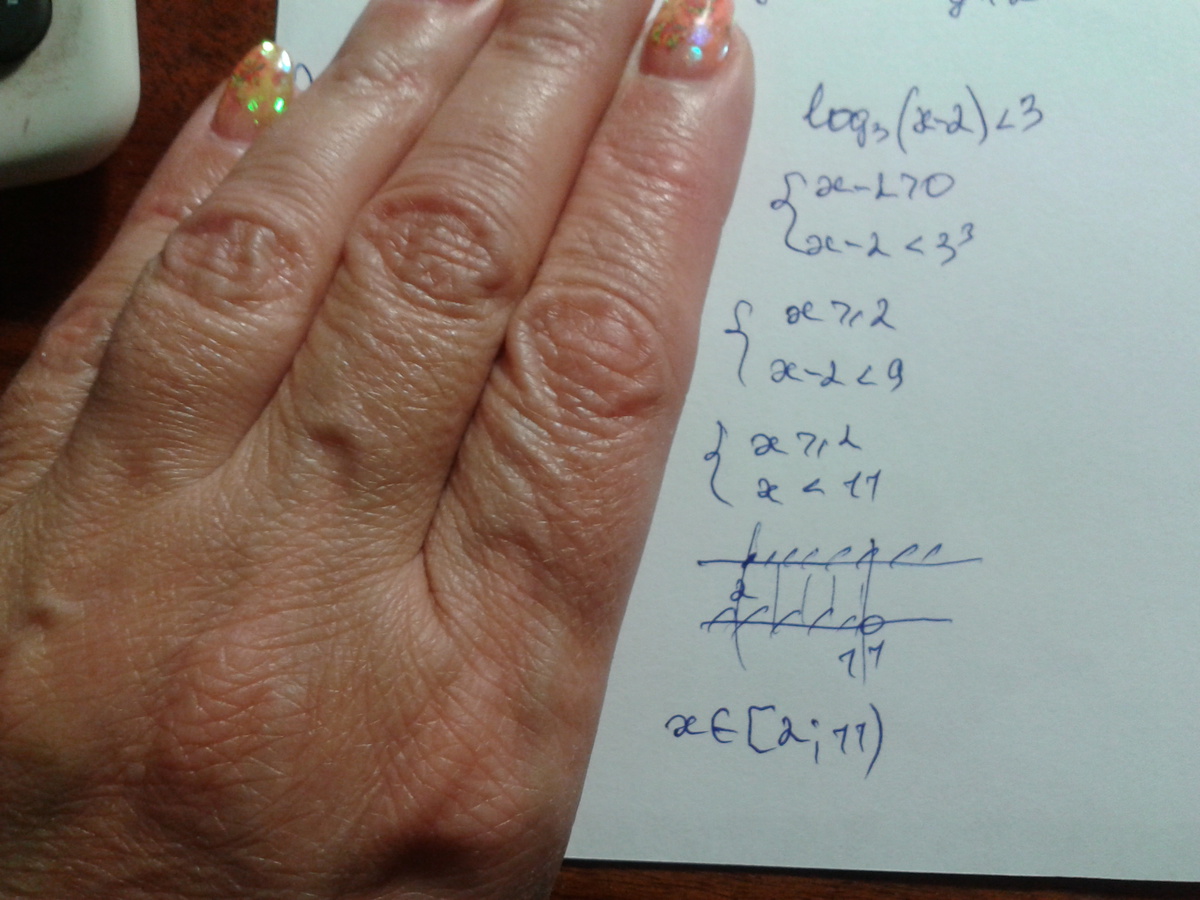 log₃(x-2)<3
{x-2>0
x-2<3³
{x≥2
x-2<9
{x≥2
x<11
2
11
x∈[2;11)